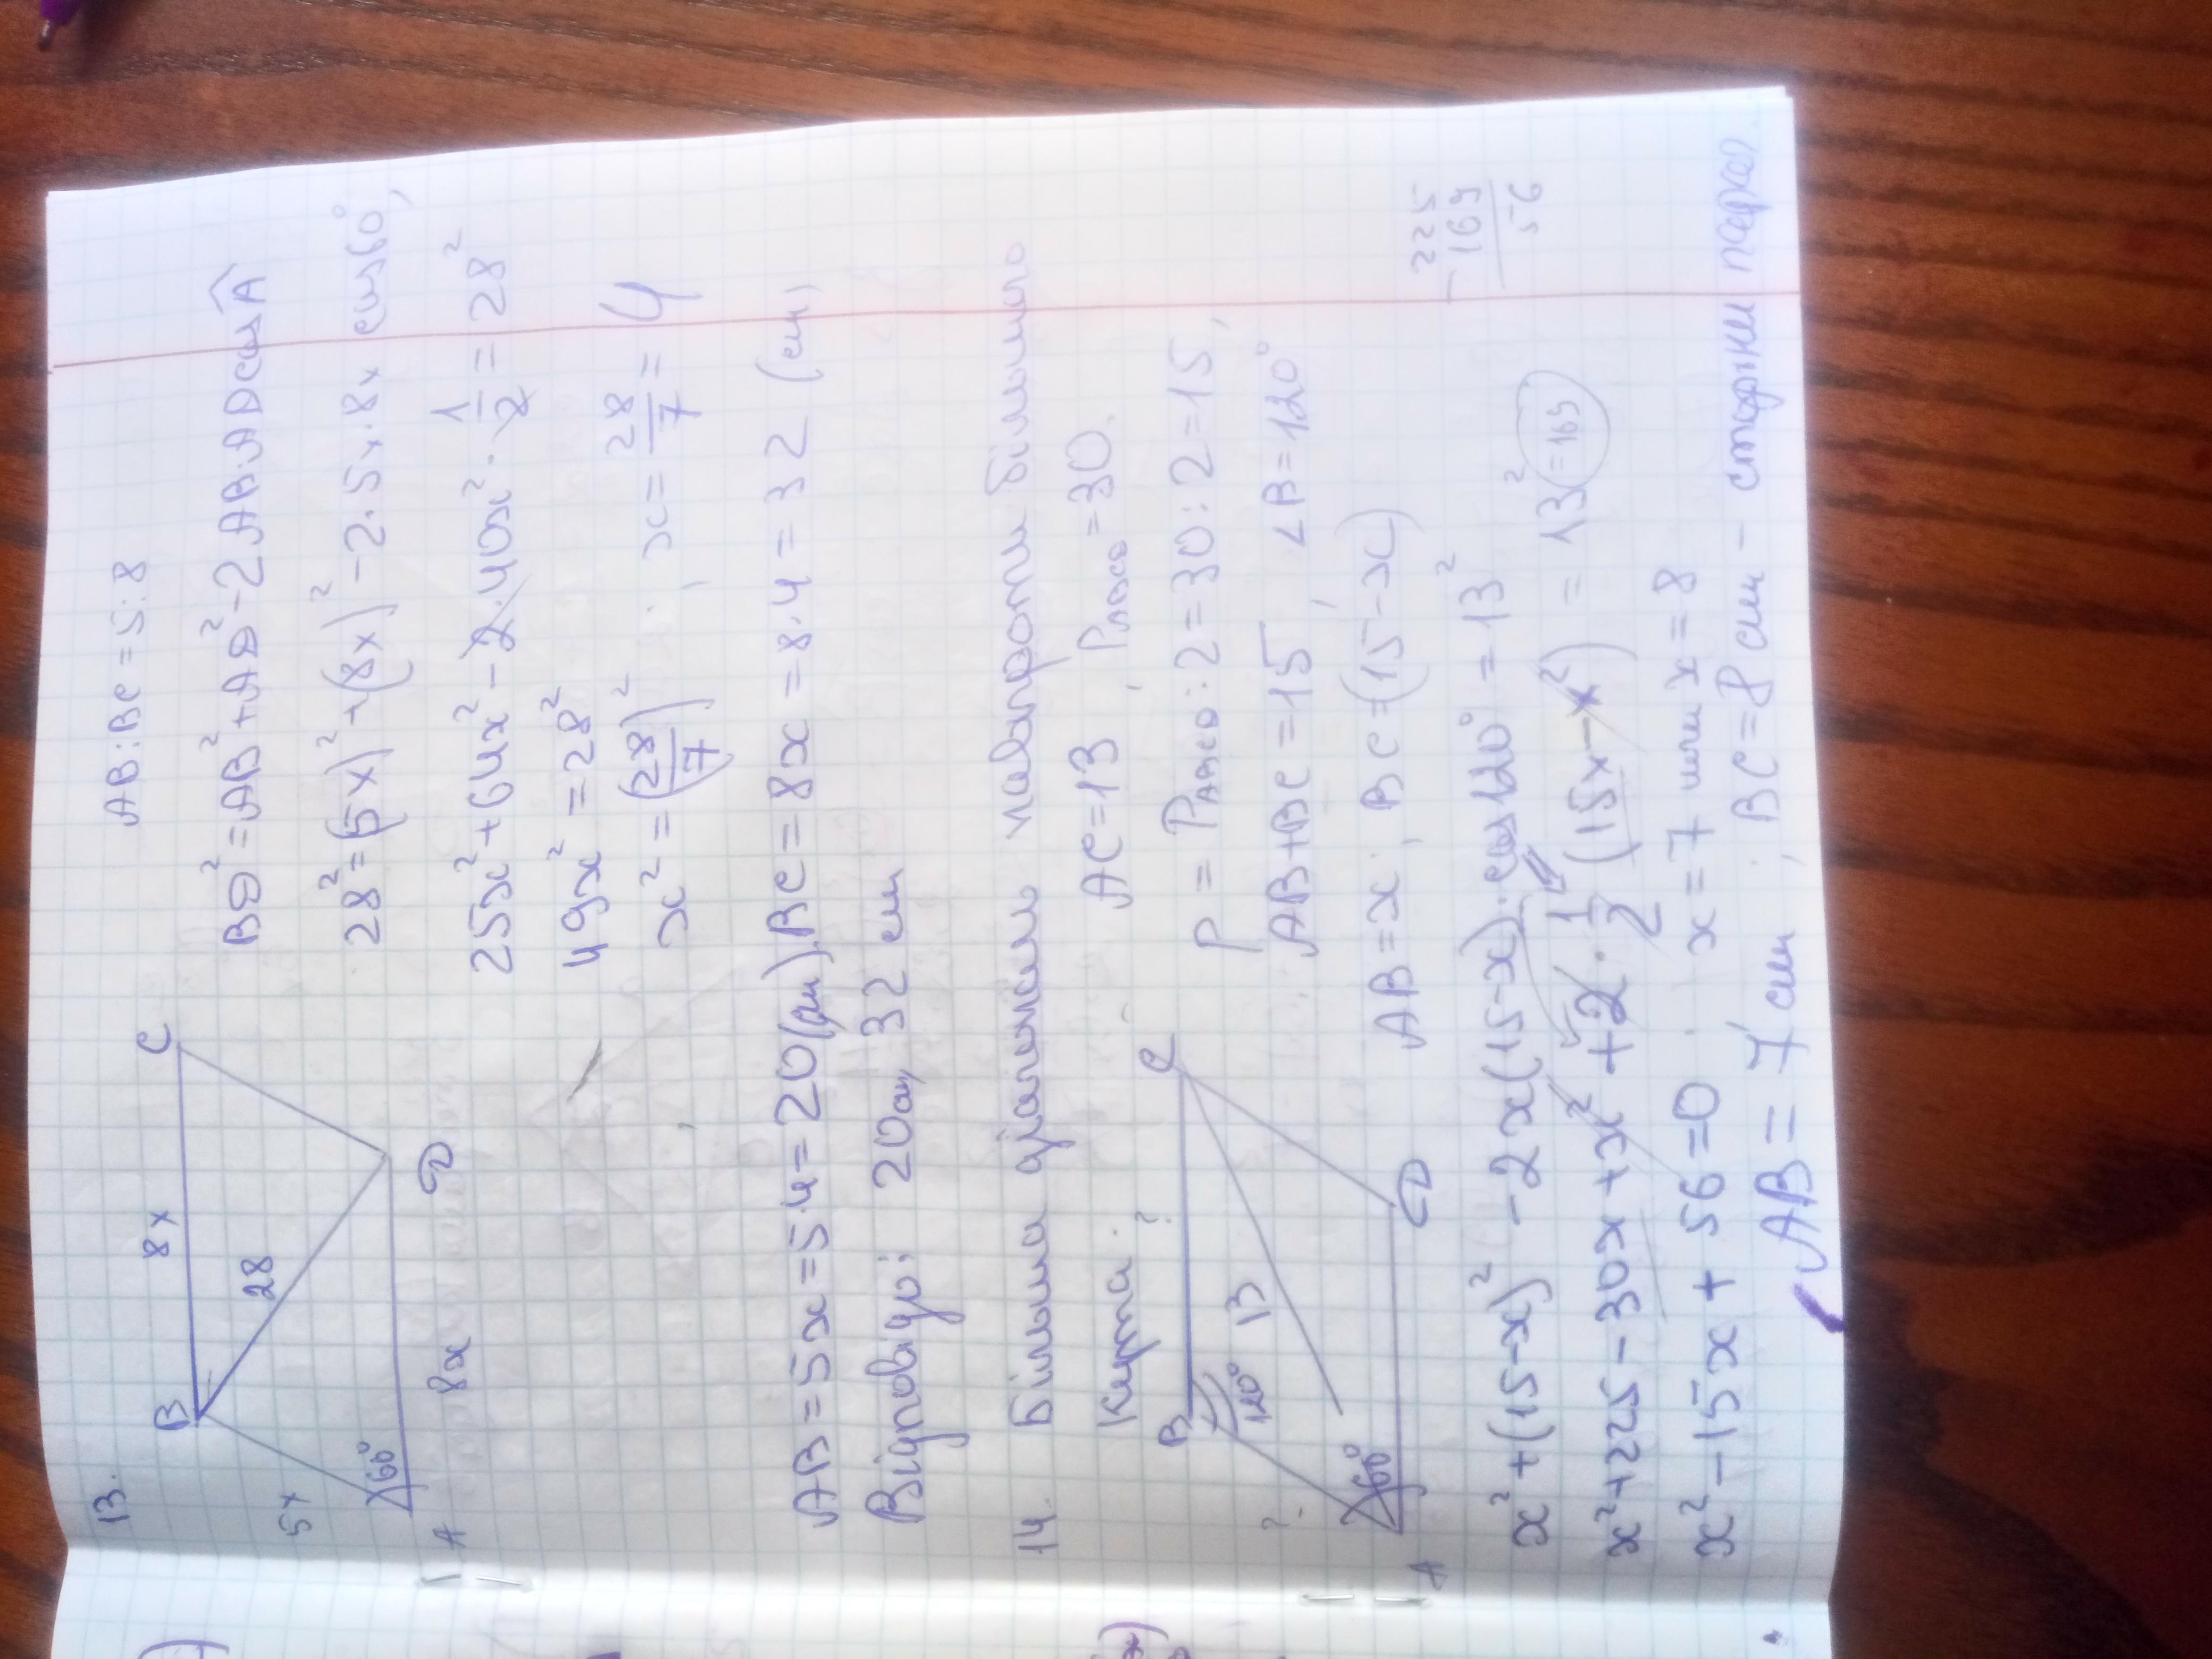 13.
AB:BC=5:8
B
8x
C
5x
28
60°
A
8x
D
BD²=AB²+AD²-2AB·AD cosÂ
28²=(5x)²+(8x)²-2·5x·8x cos60°,
25x²+64x²-2·40x²·1/2=28²
49x²=28²
x²=(28/7)², x=28/7=4
AB=5x=5·4=20(см), BC=8x=8·4=32 (см)
Відповідь: 20см, 32 см
14. Більша діагональ навпроти більшого
Кута.
AC=13, P_ABCD=30.
p=P_ABCD:2=30:2=15,
AB+BC=15, ∠B=120°
AB=x; BC=(15-x)
B
?
C
120°
13
?
60°
A
D
x²+(15-x)²-2x(15-x)·cos120°=13²
x²+225-30x+x²+2·1/2(15x-x²)=13²(=169)
225
169
56
x²-15x+56=0 x=7 или x=8
AB=7см; BC=8см - сторони